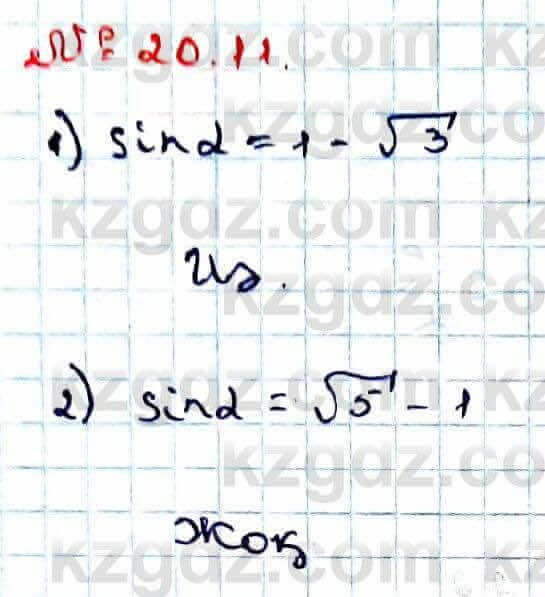 № 20.11.
1) sin α = 1 - √3
Иә.
2) sin α = √5 - 1
жоқ
kzgdz.com